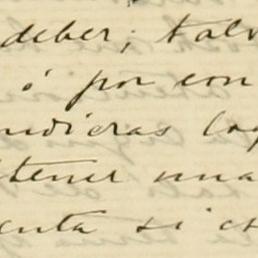 deber; talv
ó por con
udieras log
btener una
enta si es